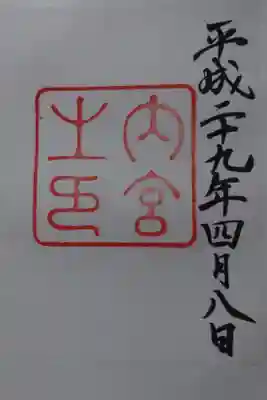 平成二十九年四月八日
内宮
之印